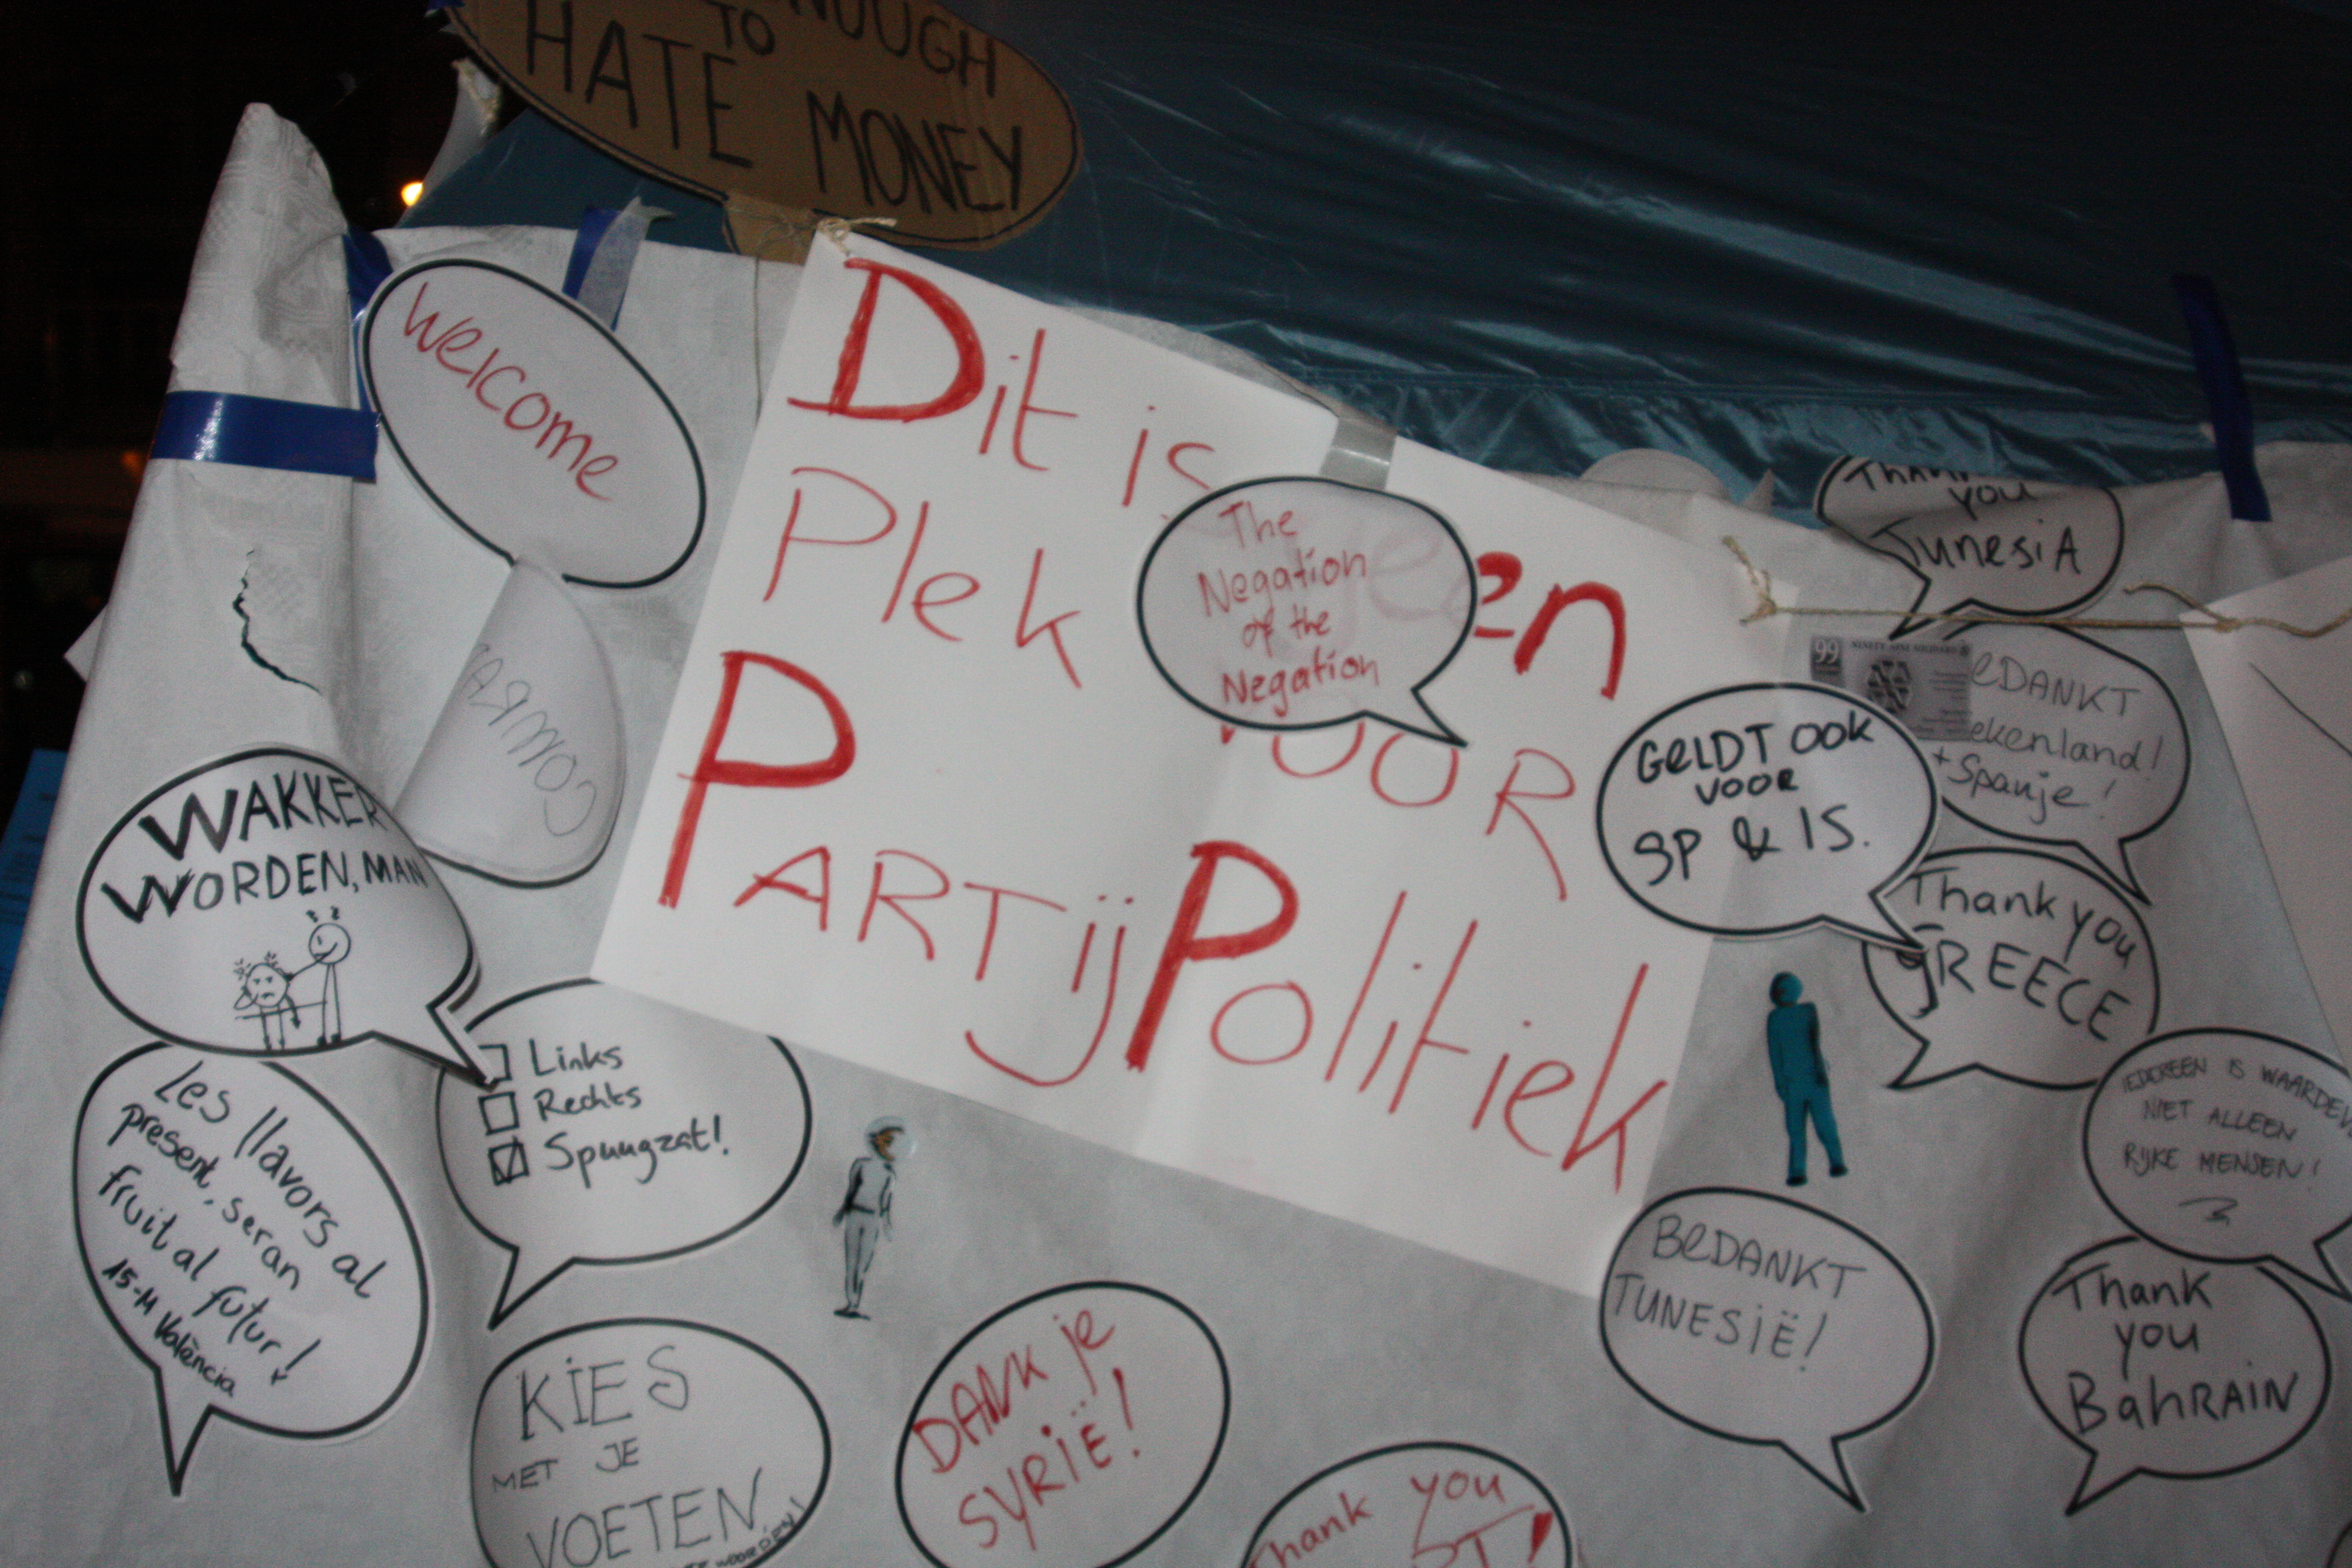 TO
HATE MONEY
Welcome
Dit is
Plek
en
VOOR
PARTIJ POLITIEK
The
Negation
of the
Negation
THANK
YOU
TUNESIA
99
BEDANKT
+ Spanje!
GELDT OOK
VOOR
SP & IS.
Thank you
GREECE
WAKKER
WORDEN, MAN
Links
Rechts
Spuugzat!
Les llavors al
present, seran
fruit al futur!
15-M València
IEDEREEN IS
NIET ALLEEN
RIJKE MENSEN!
BEDANKT
TUNESIË!
Thank
you
BAHRAIN
KIES
MET JE
VOETEN
DANK je
SYRIË!
Thank you